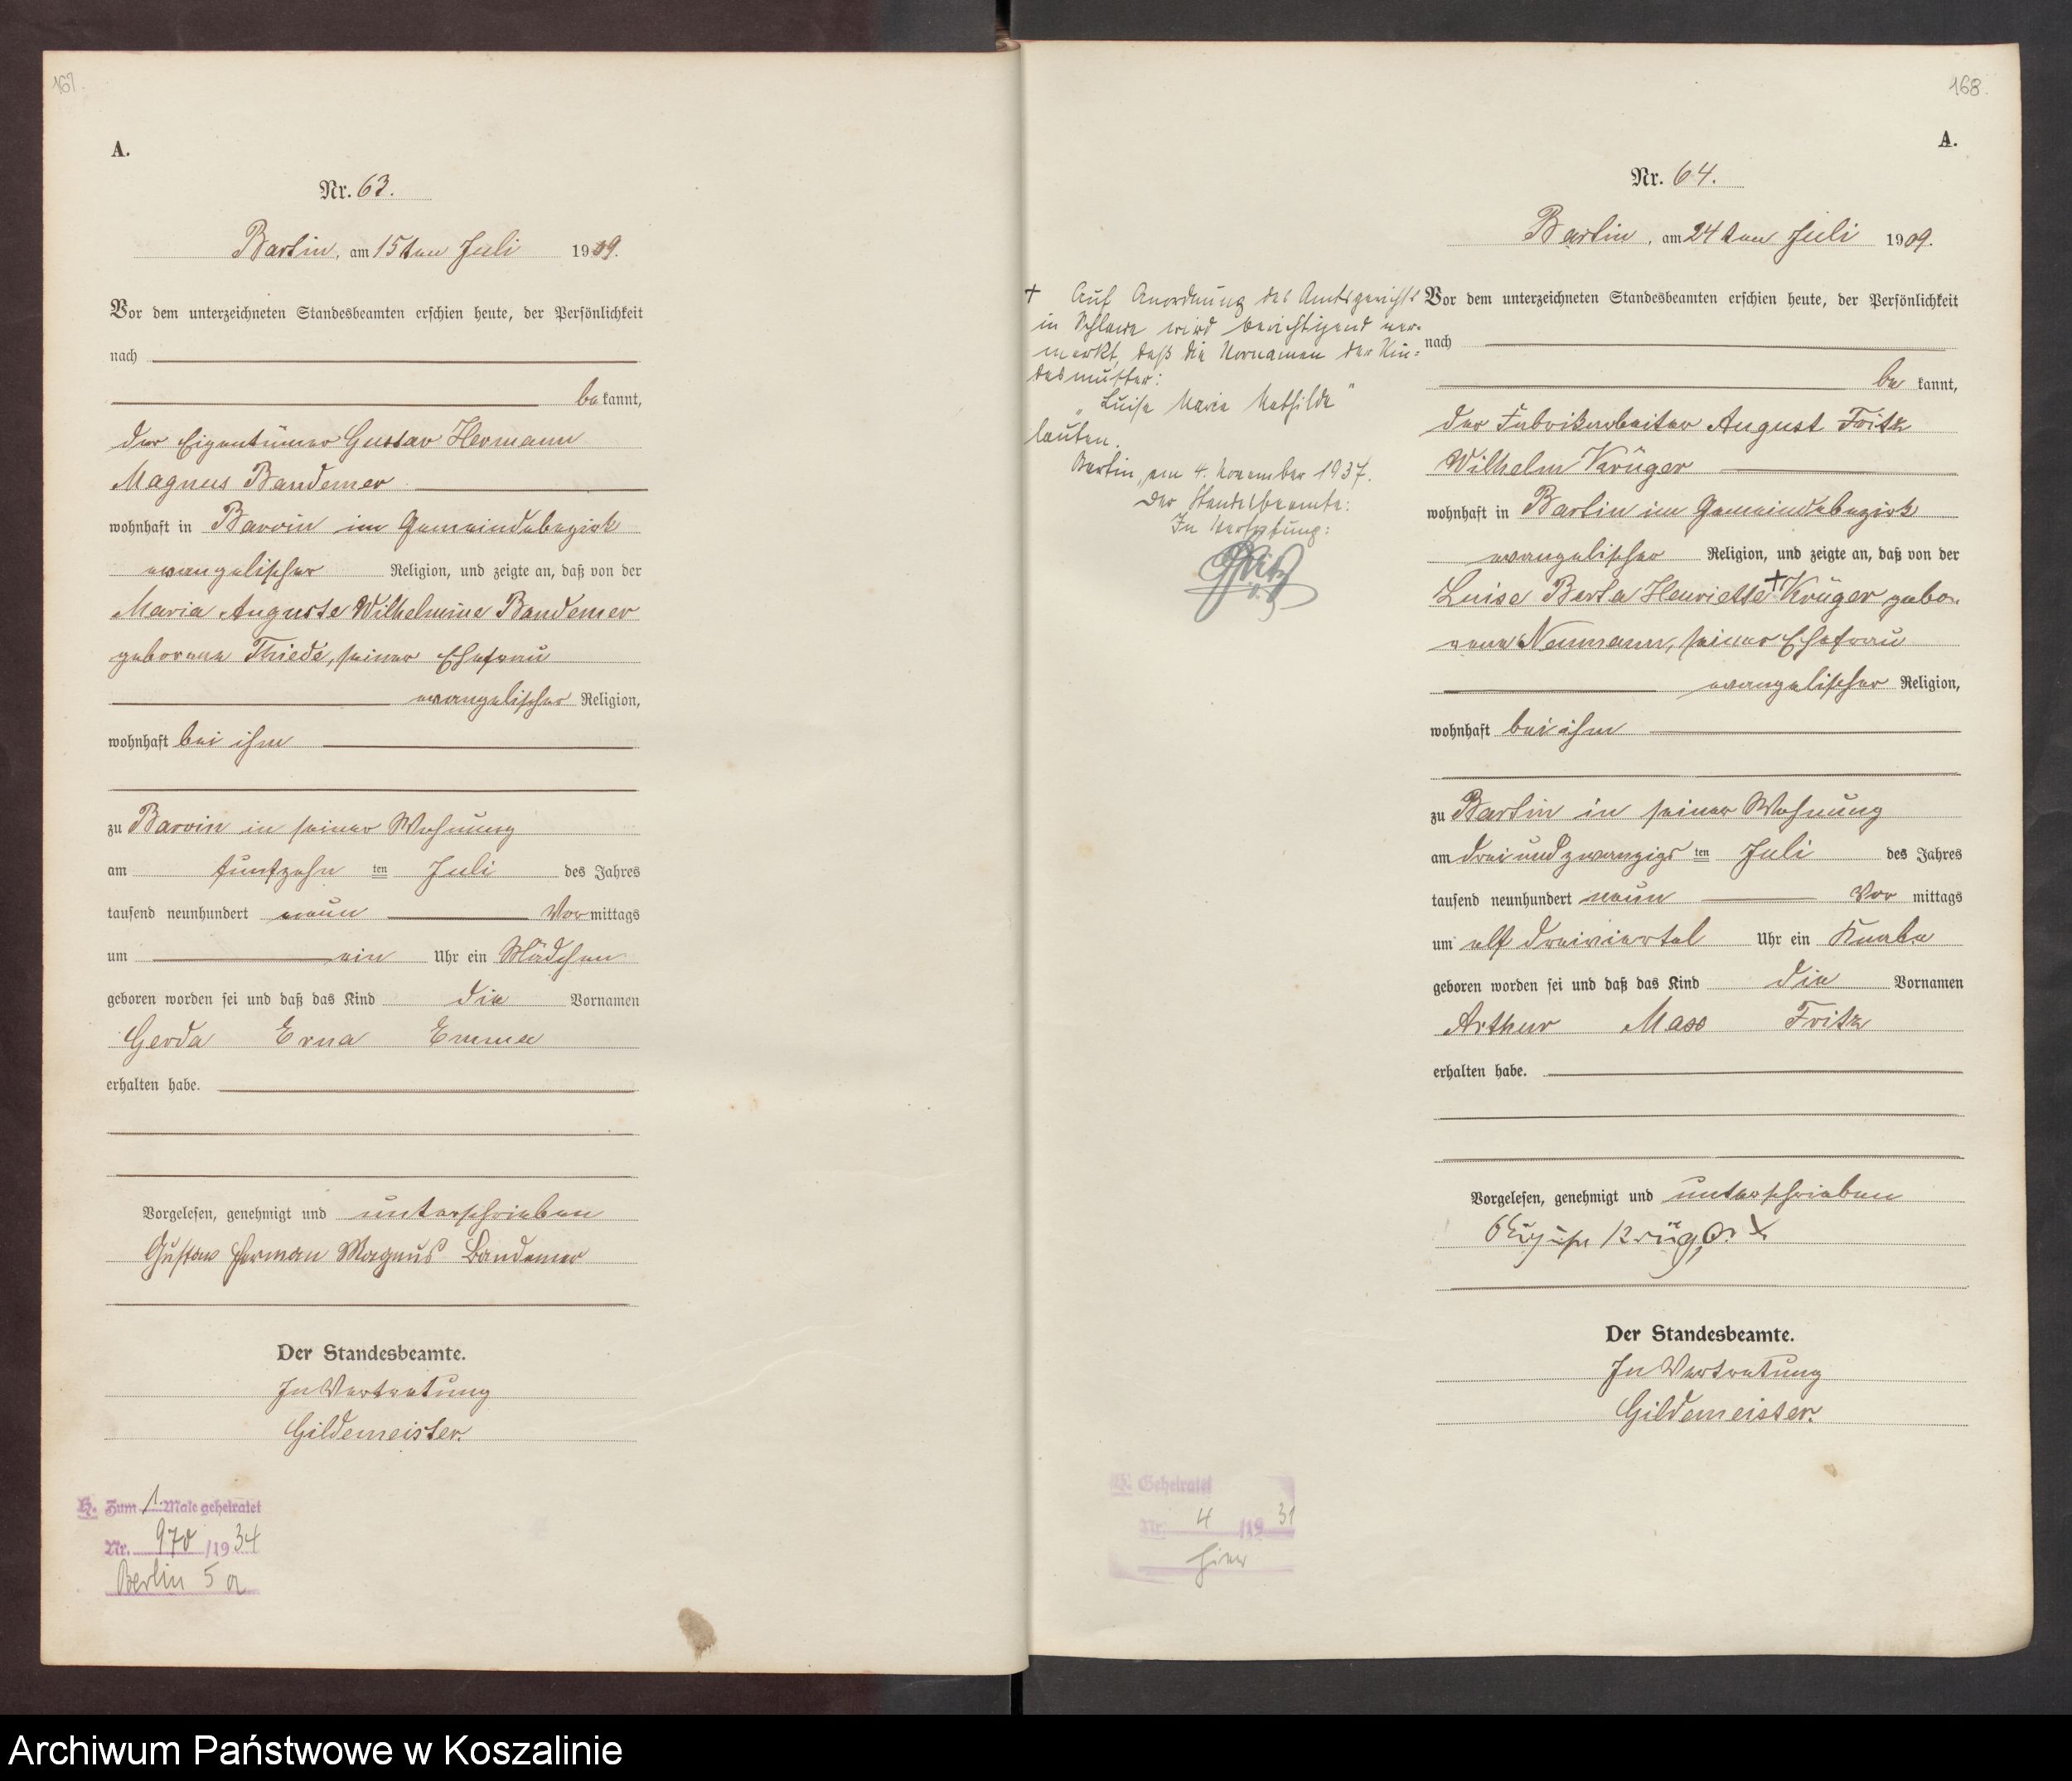 167.
A.
Nr. 63.
Bartin, am 15ten Juli 1909.
Vor dem unterzeichneten Standesbeamten erschien heute, der Persönlichkeit
nach
be kannt,
der Eigentümer Gustav Hermann
Magnus Bandemer
wohnhaft in Barvin im Gemeindebezirk
evangelischer Religion, und zeigte an, daß von der
Maria Auguste Wilhelmine Bandemer
geborene Thiede, seiner Ehefrau
evangelischer Religion,
wohnhaft bei ihm
zu Barvin in seiner Wohnung
am fünfzehn ten Juli des Jahres
tausend neunhundert neun Vor mittags
um ein Uhr ein Mädchen
geboren worden sei und daß das Kind die Vornamen
Gerda Erna Emma
erhalten habe.
Vorgelesen, genehmigt und unterschrieben
Gustav Herman Magnus Bandemer
Der Standesbeamte.
In Vertretung
Gildemeister.
H. Zum 1. Male geheiratet
Nr. 970 /1934
Berlin 5 a
168.
A.
Nr. 64.
Bartin, am 24ten Juli 1909.
† Auf Anordnung des Amtsgerichts
in Schlawe wird berichtigend ver-
merkt, daß die Vornamen der Kin-
desmutter:
„Luise Maria Mathilde"
lauten.
Bartin, am 4. November 1937.
Der Standesbeamte:
In Vertretung:
Vor dem unterzeichneten Standesbeamten erschien heute, der Persönlichkeit
nach
be kannt,
der Fabrikarbeiter August Fritz
Wilhelm Krüger
wohnhaft in Bartin im Gemeindebezirk
evangelischer Religion, und zeigte an, daß von der
Luise Berta Henriette † Krüger gebo-
rene Neumann, seiner Ehefrau
evangelischer Religion,
wohnhaft bei ihm
zu Bartin in seiner Wohnung
am dreiundzwanzigs ten Juli des Jahres
tausend neunhundert neun Vor mittags
um elf dreiviertel Uhr ein Knabe
geboren worden sei und daß das Kind die Vornamen
Arthur Max Fritz
erhalten habe.
Vorgelesen, genehmigt und unterschrieben
Krüger
Der Standesbeamte.
In Vertretung
Gildemeister.
H. Geheiratet
Nr. 4 /1931
hier
Archiwum Państwowe w Koszalinie